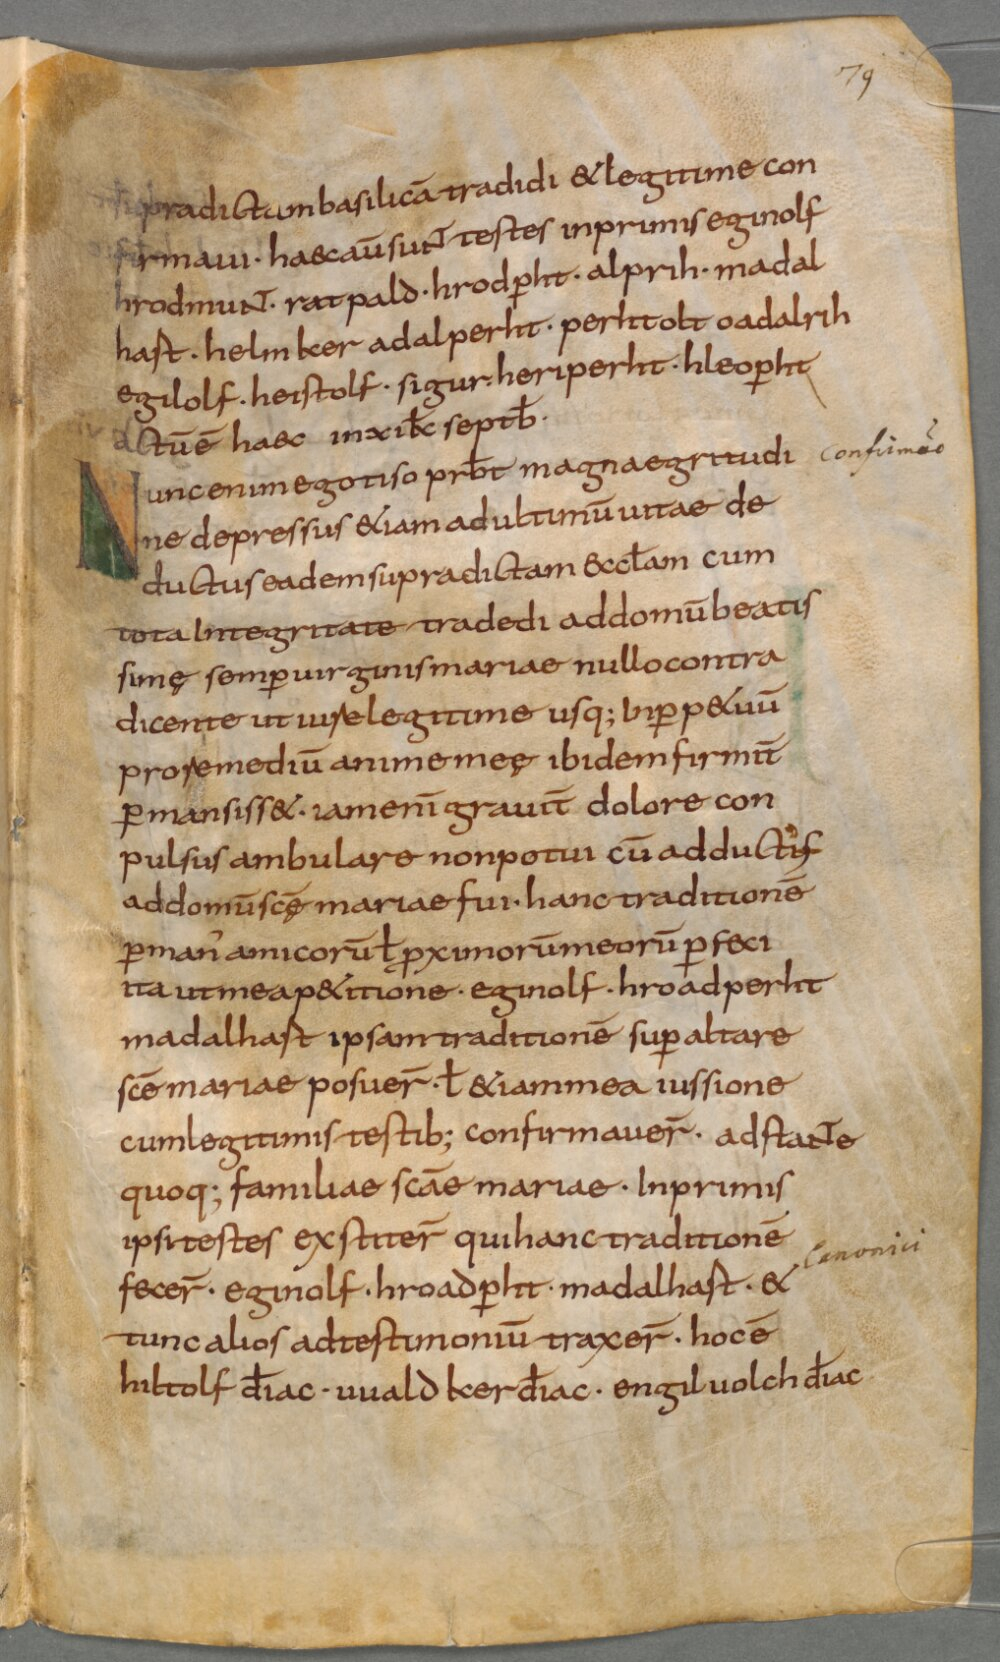 79
supradictam basilicā tradidi & legitime con
firmaui · haec aū sunt testes inprimis eginolf
hrodmunt · ratpald · hrodp̄ht · alprih · madal
hast · helmker adalperht · perhtolt oadalrih
egilolf · heistolf · sigur · heriperht · hleop̄ht
actū ē haec in xii kł septb̄ ·
Nunc enim ego tiso prb̄t magna egritudi
confirmatio
ne depressus & iam ad ultimū uitae de
ductus eadem supradictam eccl̄am cum
tota Integritate tradedi ad domū beatis
simę semp̄ uirginis mariae nullo contra
dicente ut iuste legitime usq; In p̄p&uū
pro remediū anime meę ibidem firmit̄
p̄mansiss& · iam eni᷄ grauit̄ dolore con
pulsus ambulare non potui cū adductus
ad domū scę̄ mariae fui · hanc traditionē
p̄ man᾽ amicorū ł proximorū meorū p̄feci
ita ut mea p&itione · eginolf · hroadperht
madalhast ipsam traditionē sup̄ altare
scē mariae posuer̄ · ł & iam mea iussione
cum legitimis testib; confirmauer̄ · adstante
quoq; familiae scāe mariae · Inprimis
ipsi testes exstiter̄ qui hanc traditionē
canonici
fecer̄ · eginolf · hroadp̄ht · madalhast · &
tunc alios ad testimoniū traxer̄ · hoc ē
hiltolf diāc · uualdker diāc · engiluolch diāc